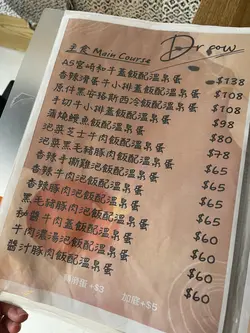 主食 Main Course
Dr sow
A5宮崎和牛蓋飯配溫泉蛋 $138
香辣滑蛋牛小排蓋飯配溫泉蛋 $108
原件黑安格斯西冷飯配溫泉蛋 $108
手切牛小排蓋飯配溫泉蛋 $98
蒲燒鰻魚飯配溫泉蛋 $80
泡菜芝士牛肉飯配溫泉蛋 $78
泡菜黑毛豬豚肉飯配溫泉蛋 $65
香辣手撕雞泡飯配溫泉蛋 $65
香辣牛肉泡飯配溫泉蛋 $65
香辣豚肉泡飯配溫泉蛋 $65
黑毛豬豚泡飯配溫泉蛋 $60
秘醬牛肉蓋飯配溫泉蛋 $60
牛肉濃湯泡飯配溫泉蛋 $60
醬汁豚肉飯配溫泉蛋 $60
+$3
加底+$5